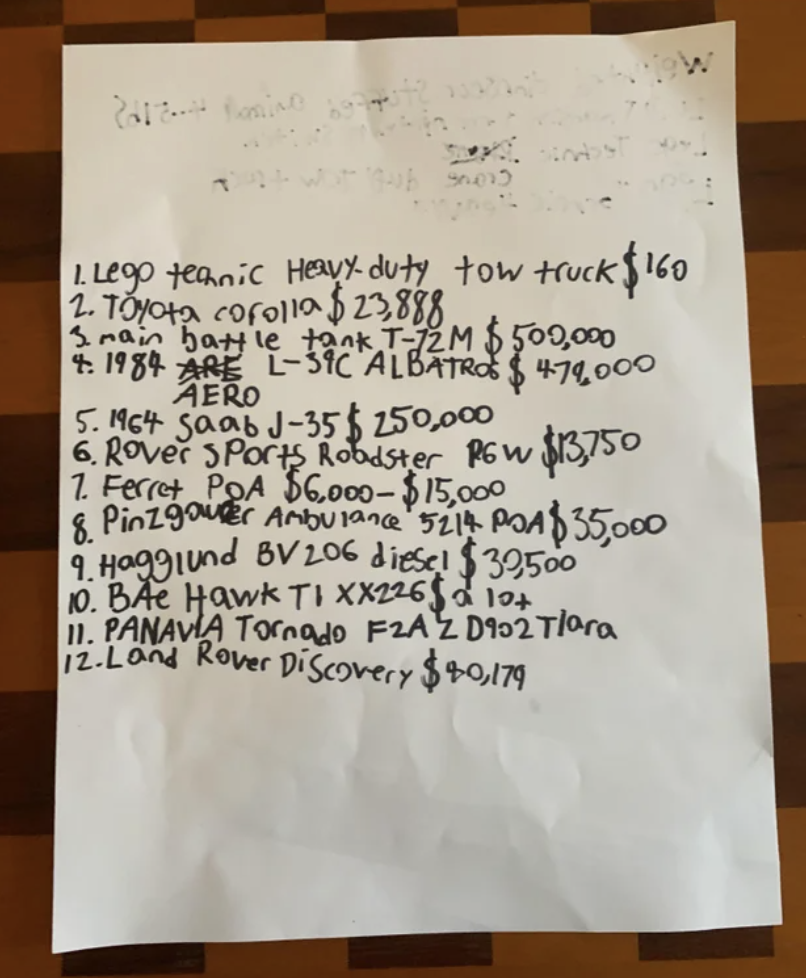 1. Lego teanic Heavy-duty tow truck $160
2. Toyota corolla $ 23,888
3. main battle tank T-72M $ 500,000
4. 1984 ARE L-39C ALBATROS $ 479,000
AERO
5. 1964 Saab J-35 $ 250,000
6. Rover sports Roadster PGW $13,750
7. Ferret POA $6,000-$15,000
8. Pinzgauer Ambulance 5214 POA $35,000
9. Hagglund BV206 diesel $ 39,500
10. BAe Hawk T1 XX226 $ a lot
11. PANAVIA Tornado F2A ZD902 Tiara
12. Land Rover Discovery $ 80,179